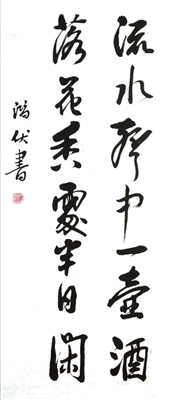 流水聲中一壺酒
落花香處半日閑
鸿伏書